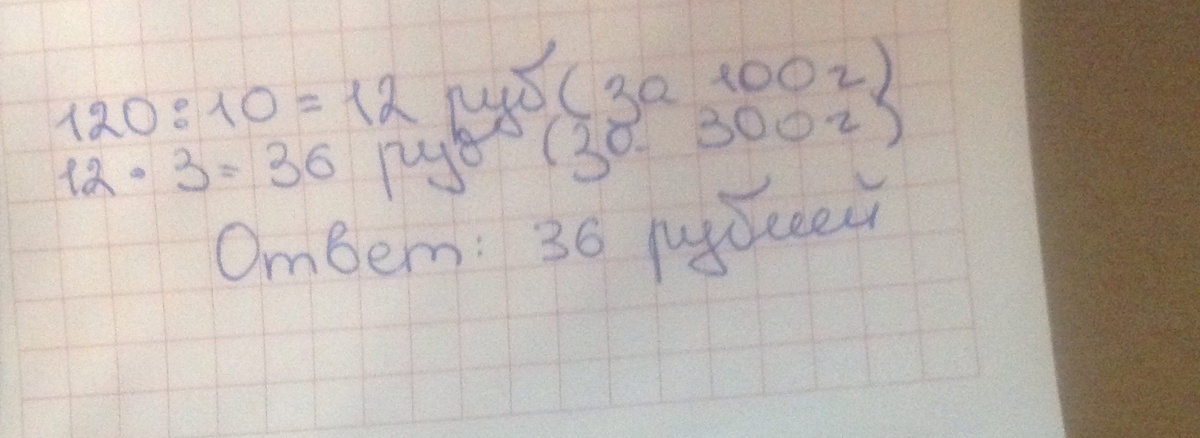 120:10=12 руб(за 100г)
12·3=36 руб (за 300г)
Ответ: 36 рублей